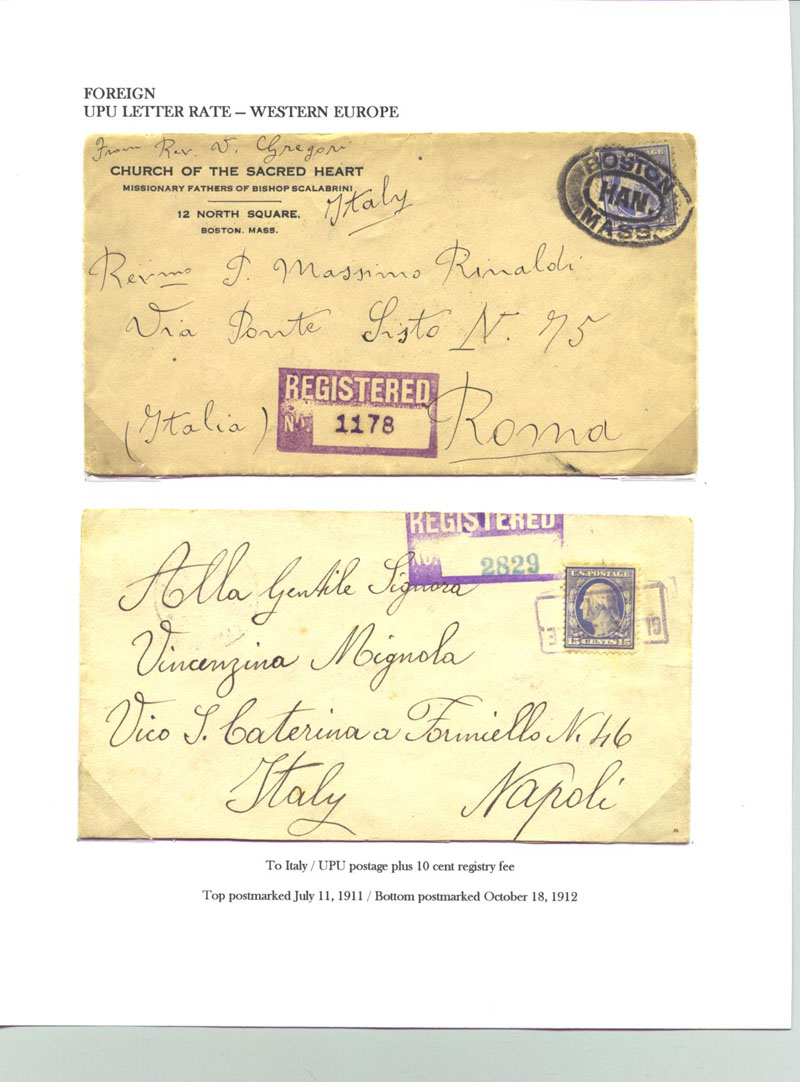 FOREIGN
UPU LETTER RATE – WESTERN EUROPE
From Rev. V. Gregori
CHURCH OF THE SACRED HEART
MISSIONARY FATHERS OF BISHOP SCALABRINI
Italy
12 NORTH SQUARE,
BOSTON. MASS.
BOSTON
HAN.
MASS.
Revmo P. Massimo Rinaldi
Via Ponte Sisto N. 75
REGISTERED
No. 1178
(Italia) Roma
REGISTERED
No. 2829
U.S. POSTAGE
15 CENTS 15
19
Alla Gentile Signora
Vincenzina Mignola
Vico S. Caterina a Formiello N. 46
Italy Napoli
To Italy / UPU postage plus 10 cent registry fee
Top postmarked July 11, 1911 / Bottom postmarked October 18, 1912